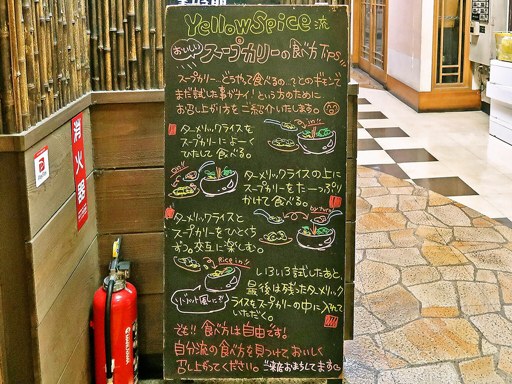 YellowSpice流
おいしいスープカリーの食べ方Tips
スープカリー…どうやって食べるの…?とのギモンで
まだ試した事がナイ!という方のために
お召し上がり方をご紹介いたします。
ターメリックライスを
スープカリーによーく
ひたして食べる。
ターメリックライスの上に
スープカリーをたーっぷり
かけて食べる。
ターメリックライスと
スープカリーをひとくち
ずつ。交互に楽しむ。
Rice in!!
いろいろ試したあと、
最後は残ったターメリック
ライスをスープカリーの中に入れて
いただく。
リゾット風に…?!
でも!!食べ方は自由です!
自分流の食べ方を見つけておいしく
召し上がってください。ご来店お待ちしてます
消火器